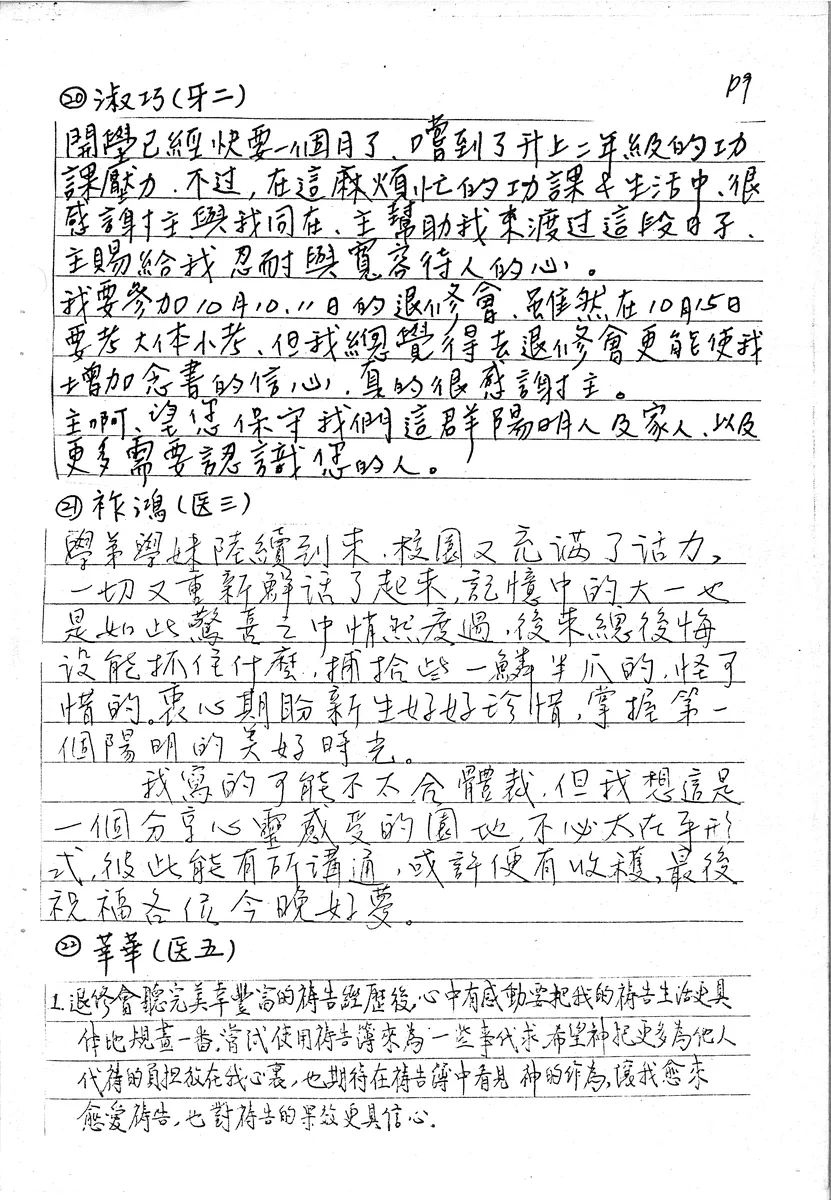 p9
⑳ 淑巧(牙二)
開學已經快要一個月了、嚐到了升上二年級的功
課壓力.不过,在這麻煩忙的功課&生活中、很
感謝主與我同在、主幫助我來渡过這段日子、
主賜給我忍耐與寬容待人的心。
我要參加10月10.11日的退修會、雖然在10月15日
要考大体小考、但我總覺得去退修會更能使我
增加念書的信心、真的很感謝主。
主啊、望您保守我們這群陽明人及家人、以及
更多需要認識您的人。
㉑ 祚鴻(医三)
學弟學妹陸續到來.校園又充满了活力,
一切又重新鮮活了起來,記憶中的大一也
是如此驚喜之中悄然度過,後來總後悔
沒能抓住什麼,捕拾些一鱗半爪的,怪可
惜的。衷心期盼新生好好珍惜,掌握第一
個陽明的美好時光。
我寫的可能不太合體裁,但我想這是
一個分享心靈感受的園地,不必太在乎形
式,彼此能有所溝通,或許便有收穫,最後
祝福各位今晚好夢。
㉒ 莘華(医五)
1.退修會聽完美幸豐富的禱告經歷後,心中有感動要把我的禱告生活更具
体地規畫一番,嘗試使用禱告簿來為一些事代求.希望神把更多為他人
代禱的負担放在我心裏,也期待在禱告簿中看見神的作為,讓我愈來
愈愛禱告,也對禱告的果效更具信心.